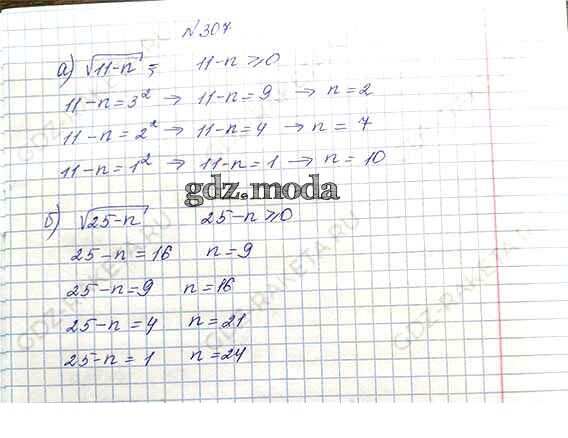 №307
а) √11-n ; 11-n ⩾0
11-n=3² → 11-n=9 → n=2
11-n=2² → 11-n=4 → n=7
11-n=1² → 11-n=1 → n=10
gdz.moda
б) √25-n 25-n⩾0
25-n=16 n=9
25-n=9 n=16
25-n=4 n=21
25-n=1 n=24
GDZ-RAKETA.RU
GDZ-RAKETA.RU